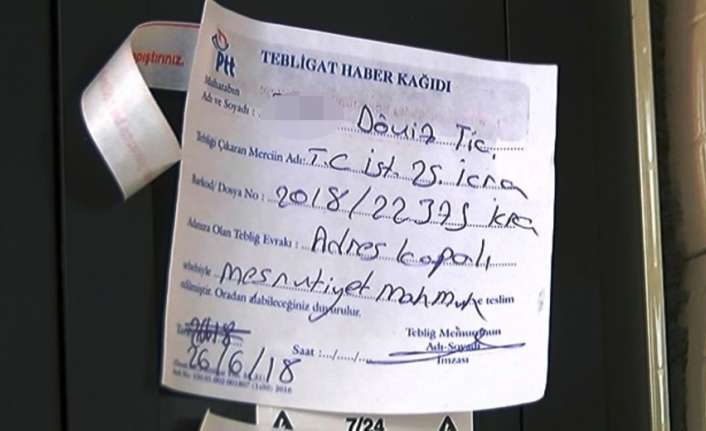 apıştırınız.
Ptt
TEBLİGAT HABER KAĞIDI
Muhatabın
Adı ve Soyadı : Döviz Tic.
Tebliği Çıkaran Merciin Adı: T.C ist. 25. icra
Barkod/ Dosya No : 2018/22375 icra
Adınıza Olan Tebliğ Evrakı : Adres kapalı
sebebiyle Meşrutiyet mahmuh 'e teslim
edilmiştir. Oradan alabileceğiniz duyurulur.
Tebliğ Memurunun
Saat :.../.../... Adı-Soyadı
26/6/18 İmzası
7/24